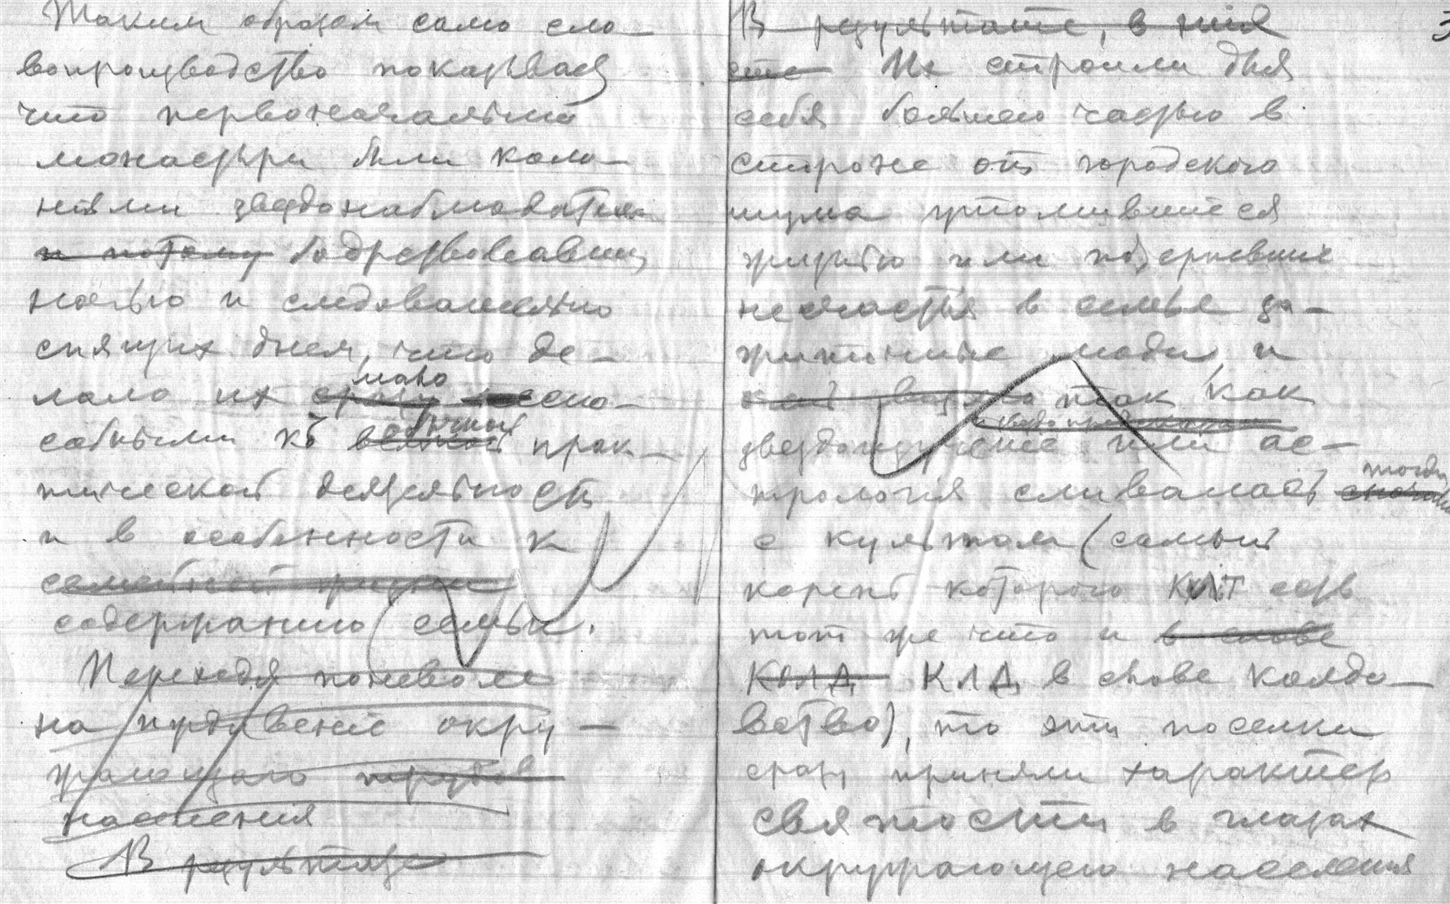 Таким образом само сло-
вопроизводство показывает
что первоначальные
монастыри были коло-
ниями звездонаблюдателей
и потому бодрствовавших
ночью и следовательно
спящих днем, что де-
лало их мало спо-
собными къ обычной прак-
тической деятельности
и в особенности к
семейной жизни
содержанию семьи.
Переходя поневоле
на иждивение окру-
жающаго
населения
В результате
В результате, в них
3
Их строили для
себя большею частью в
стороне от городского
шума утомившиеся
жизнью или потерпевшие
несчастья в семье за-
житочные люди, и
так как
звездочетение или ас-
трология сливалась тогда
с культом (самый
корень которого КЛТ есть
тот же что и в слове
КОЛД КЛД в слове колдо-
вство), то эти поселки
сразу приняли характер
святости в глазах
окружающего населения